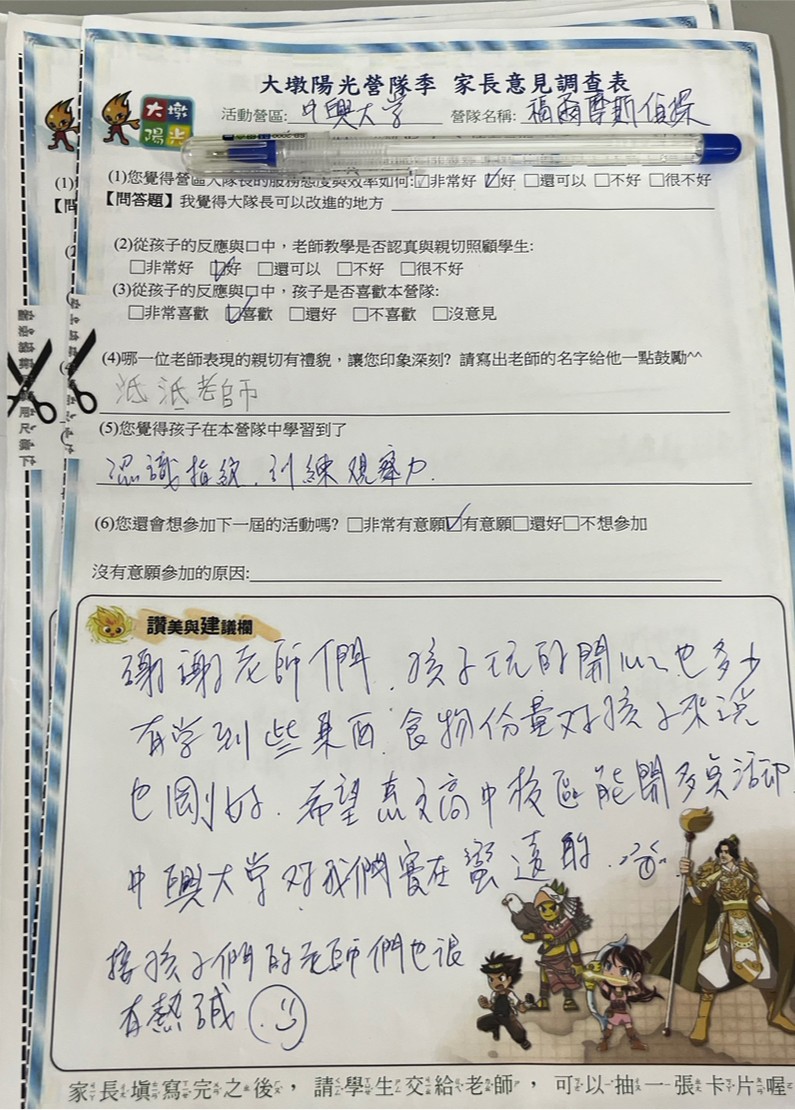 大墩陽光營隊季 家長意見調查表
大墩
陽光
活動營區: 中興大学 營隊名稱: 福爾摩斯偵探
(1)您覺得營區大隊長的服務態度與效率如何:☑非常好 ☑好 □還可以 □不好 □很不好
【問答題】我覺得大隊長可以改進的地方
(2)從孩子的反應與口中，老師教學是否認真與親切照顧學生:
□非常好 ☑好 □還可以 □不好 □很不好
(3)從孩子的反應與口中，孩子是否喜歡本營隊:
□非常喜歡 ☑喜歡 □還好 □不喜歡 □沒意見
(4)哪一位老師表現的親切有禮貌，讓您印象深刻? 請寫出老師的名字給他一點鼓勵^^
泜泜老師
(5)您覺得孩子在本營隊中學習到了
認識指紋.訓練觀察力.
(6)您還會想參加下一屆的活動嗎? □非常有意願☑有意願□還好□不想參加
沒有意願參加的原因:
讚美與建議欄
謝謝老師們.孩子玩的開心也多少
有学到些東西.食物份量对孩子來說
也剛好.希望惠文高中校區能開多點活動.
中興大学对我們實在蠻遠的.
接孩子們的老師們也很
有熱誠
家長填寫完之後，請學生交給老師，可以抽一張卡片喔